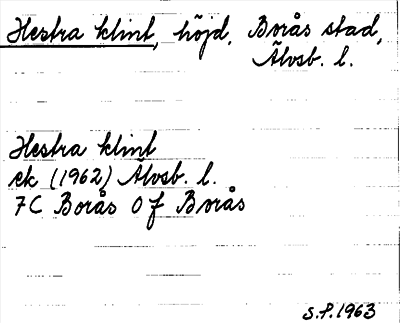 Hestra klint, höjd. Borås stad,
Älvsb. l.
Hestra klint
ek (1962) Älvsb. l.
7C Borås 0f Borås
S.P. 1963